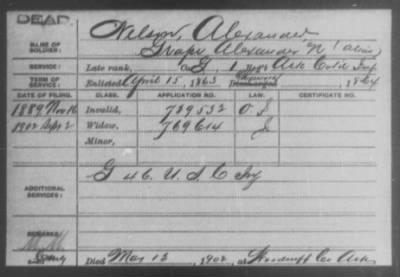 DEAD.
NAME OF SOLDIER: Nelson, Alexander
Alexander N (alias)
SERVICE: Late rank, Co. G, 1 Reg't Ark Cold Inf
TERM OF SERVICE: Enlisted April 15, 1863 Discharged, 1864
DATE OF FILING. CLASS. APPLICATION NO. LAW. CERTIFICATE NO.
1889 Nov 16 Invalid, 739532
1902 Sept 2 Widow, 769614
Minor,
ADDITIONAL SERVICES: G 46 U.S.C Inf
REMARKS:
Died May 13, 1902, at Woodruff Co Ark